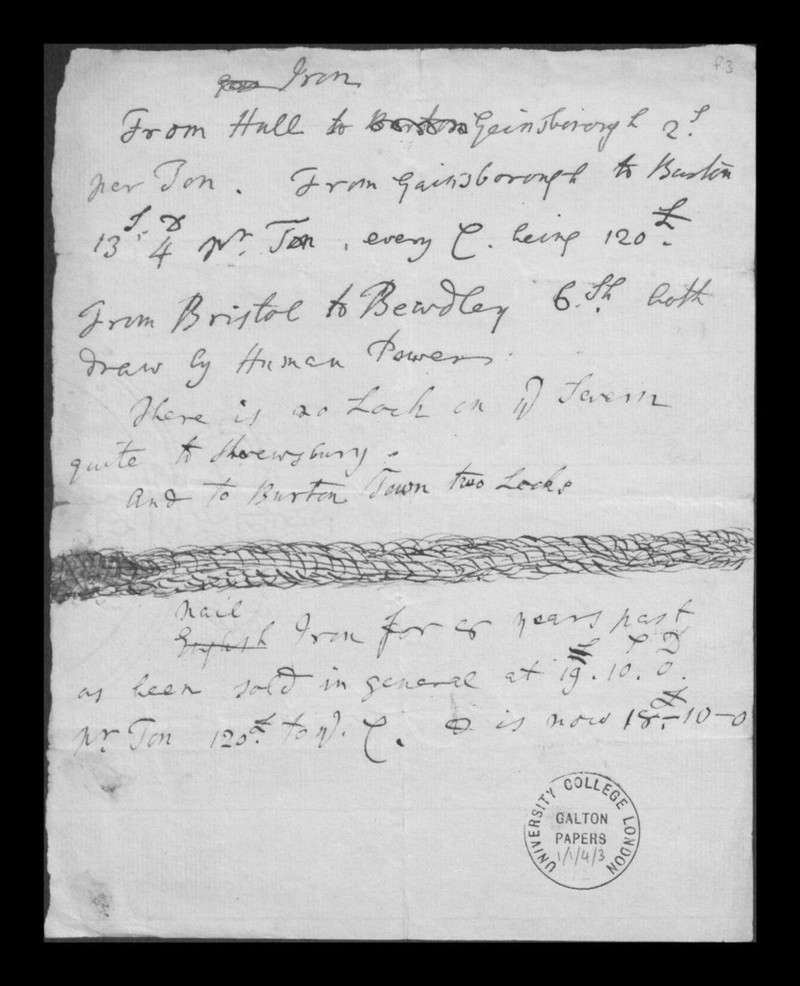 f3
Iron
From Hull to Burton Gainsborough 2S.
per Ton. From Gainsborough to Burton
13S. 4D pr. Ton, every C. being 120 £.
From Bristol to Bewdley 6.Sh. both
draw by Human Powers.
There is no Lock on yd Severn
quite to Shrewsbury.
and to Burton Town two Locks
nail
English Iron for 8 years past
as been sold in general at 19£. 10S. 0D.
pr. Ton 120£. to yd. C. & is now 18£-10-0
UNIVERSITY COLLEGE LONDON
GALTON
PAPERS
1/1/4/3